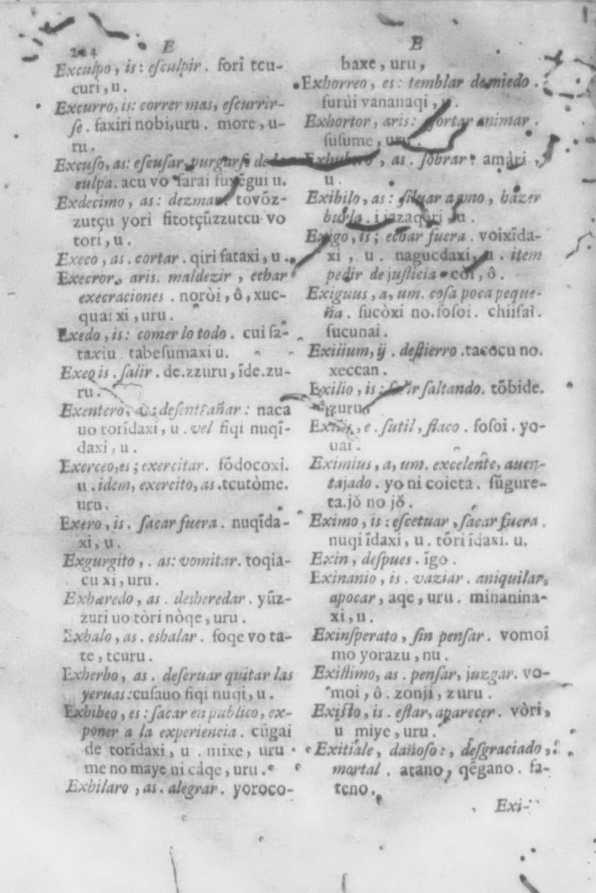 E
Exculpo, is: eſculpir. fori tcu-
curi, u.
Excurro, is: correr mas, eſcurrir-
ſe. ſaxiri nobi, uru. more, u-
ru.
Excuſo, as: eſcuſar, purgarſe de la
culpa. acu vo ſarai ſurègui u.
Exdecimo, as: dezmar. tovoz-
zutçu yori fitotçũzzutcu vo
tori, u.
Execo, as. cortar. qiri ſataxi, u.
Execror, aris. maldezir, echar
execraciones. noròi, ô, xuc-
quai xi, uru.
Exedo, is: comer lo todo. cui ſa-
taxi u tabeſumaxi u.
Exeo is. ſalir. de.zzuru, ĩde.zu-
ru.
Exentero, deſentrañar: naca
uo torĩdaxi, u. vel fiqi nuqĩ-
daxi, u.
Exerceo, es; exercitar. ſõdocoxi.
u. idem, exercito, as. tcutòme.
uru.
Exero, is. ſacar fuera. nuqĩda-
xi, u.
Exgurgito, . as: vomitar. toqia-
cu xi, uru.
Exhæredo, as. desheredar. yũz-
zuri uo tòri nòqe, uru.
Exhalo, as. eshalar. foqe vo ta-
te, tcuru.
Exherbo, as. deſeruar quitar las
yeruas: cuſauo fiqi nuqi, u.
Exhibeo, es: ſacar en publico, ex-
poner a la experiencia. cũgai
de torĩdaxi, u. mixe, uru
me no maye ni câqe, uru.
Exhilaro, as. alegrar. yoroco-
E
baxe, uru,
Exhorreo, es: temblar de miedo.
furùi vananaqi, u.
Exhortor, aris: animar.
ſuſume, uru.
as. ſobrar. amàri
u.
Exibilo, as: ſiluar a uno, házer
burla. u.
Exigo, is; echar fuera. voixĩda-
xi, u. nagucdaxi, u. item
pedir de juſticia. coi, ô.
Exiguus, a, um. coſa poca peque-
ña. ſucòxi no. foſoi. chiiſai.
ſucunai.
Exilium, ij. deſtierro. tacocu no.
xeccan.
Exilio, is: ſalir ſaltando. tõbide.
uru.
e. ſutil, flaco. foſoi. yo-
uai.
Eximius, a, um. excelente, auen-
tajado. yo ni coieta. ſũgure-
ta. jŏ no jŏ.
Eximo, is: eſcetuar, ſacar fuera.
nuqi ĩdaxi, u. tõri ĩdaxi. u.
Exin, deſpues. ĩgo.
Exinanio, is. vaziar. aniquilar,
apocar, aqe, uru. minanina-
xi, u.
Exinſperato, ſin penſar. vomoi
mo yorazu, nu.
Exiſtimo, as. penſar, juzgar. vo-
moi, ô. zonji, zuru.
Exiſto, is. eſtar, aparecer. vòri,
u miye, uru.
Exitiale, dañoso:, deſgraciado,
mortal. atano, qẽgano. fa-
teno.
Exi-